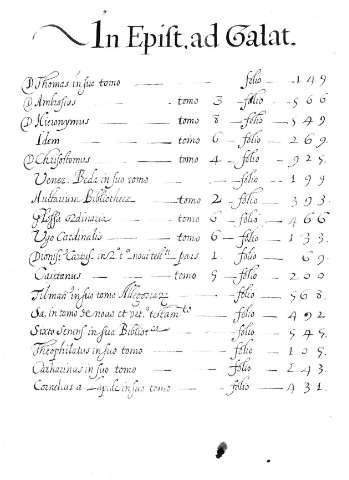 In Epist. ad Galat.
D Thomas in suo tomo folio 149
D Ambrosius tomo 3 folio 566
D Hieronymus tomo 8 folio 549
Idem tomo 6 folio 269.
D Chrisostomus tomo 4 folio 925.
Vener. Beda in suo tomo folio 199
Auttarium Bibliothecæ tomo 2 folio 393
Glossa ordinaria tomo 6 folio 466
Ugo Cardinalis tomo 6 folio 133.
Dionis. Cartus. in 2ª tº noui test.ti pars 1. folio 69.
Caietanus tomo 5 folio 200
in suo tomo Allegoriar. folio 568.
Sa, in tomo De nouo et vet.º testamto folio 492
Sixto Senens. in sua Bibliot.ca folio 545.
Theophilatus in suo tomo folio 105.
Catharinus in suo tomo folio 243
Cornelius a Lapide in suo tomo folio 431.